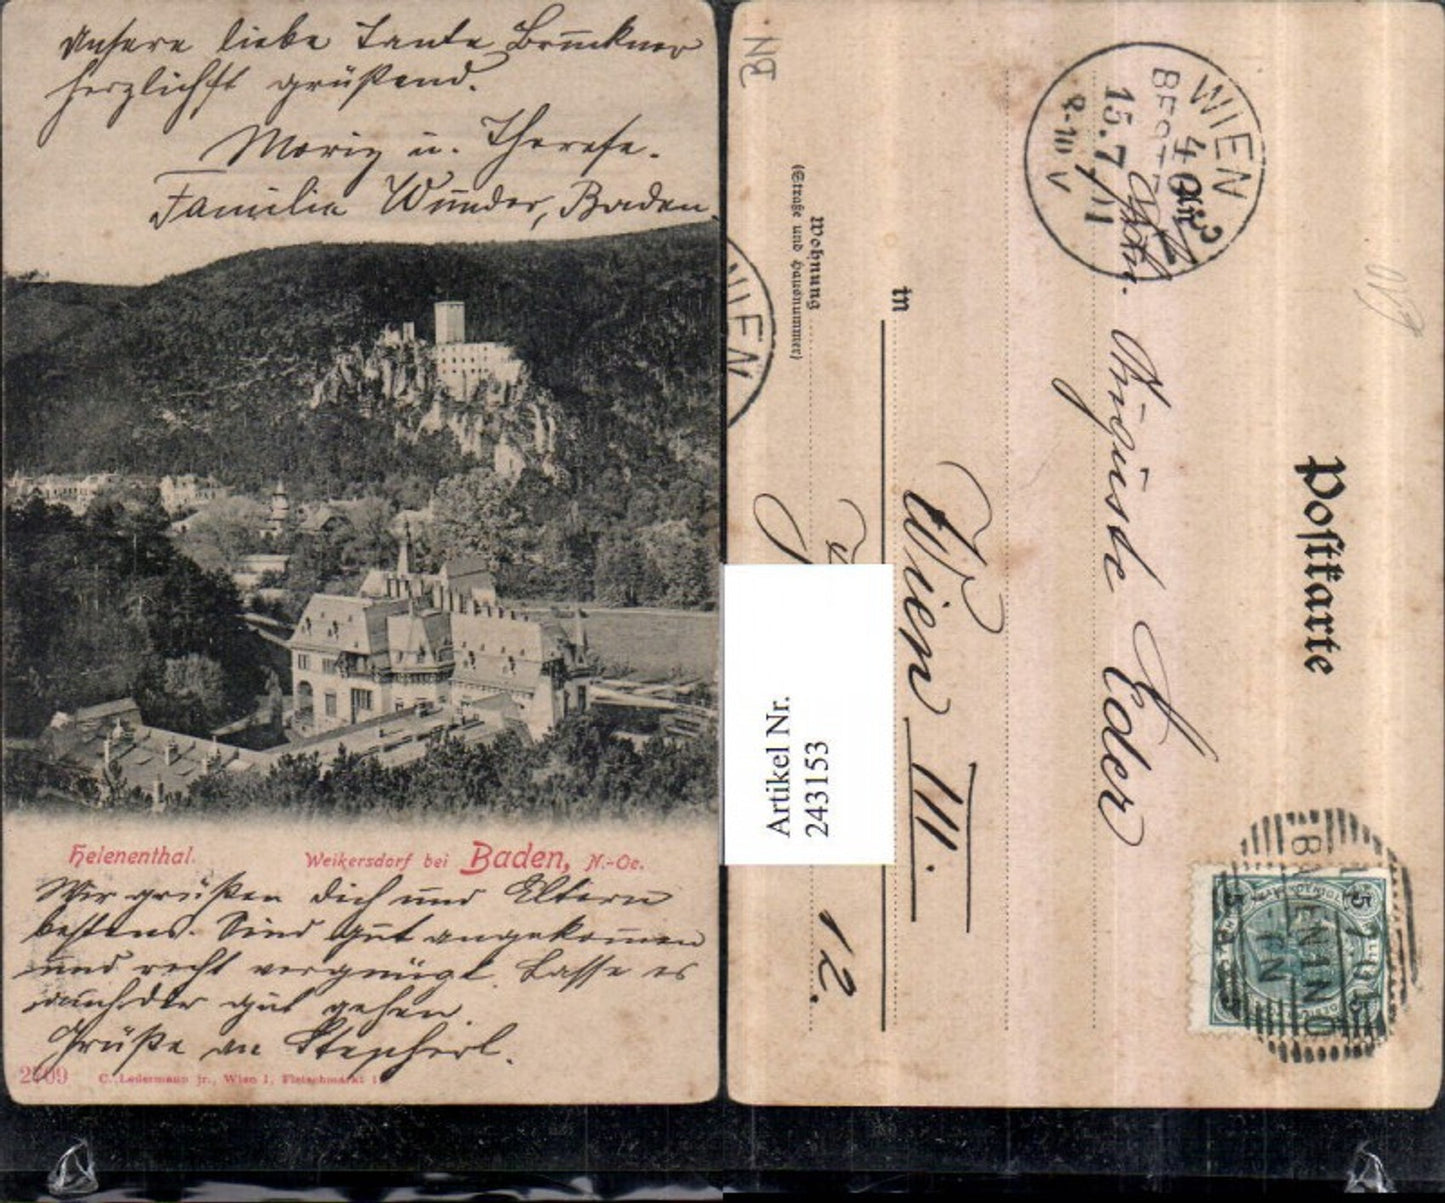 Unsere liebe Tante Bruckner
herzlichst grüßend.
Moriz u. Therese.
Familie Wunder, Baden.
Helenenthal.
Weikersdorf bei Baden, N.-Oe.
Wir grüßen Dich und Eltern
bestens. Sind gut angekommen
und recht vergnügt. Lasse es
auch dir gut gehen.
Grüße an Stepherl.
2709
C. Ledermann jr., Wien I, Fleischmarkt
BN
WIEN
40
15.7.01
8-10 V
WIEN
Postkarte
Auguste Eder
in
Wien III.
Wohnung
(Straße und Hausnummer)
12.
Artikel Nr.
2431153
BADEN
5
5